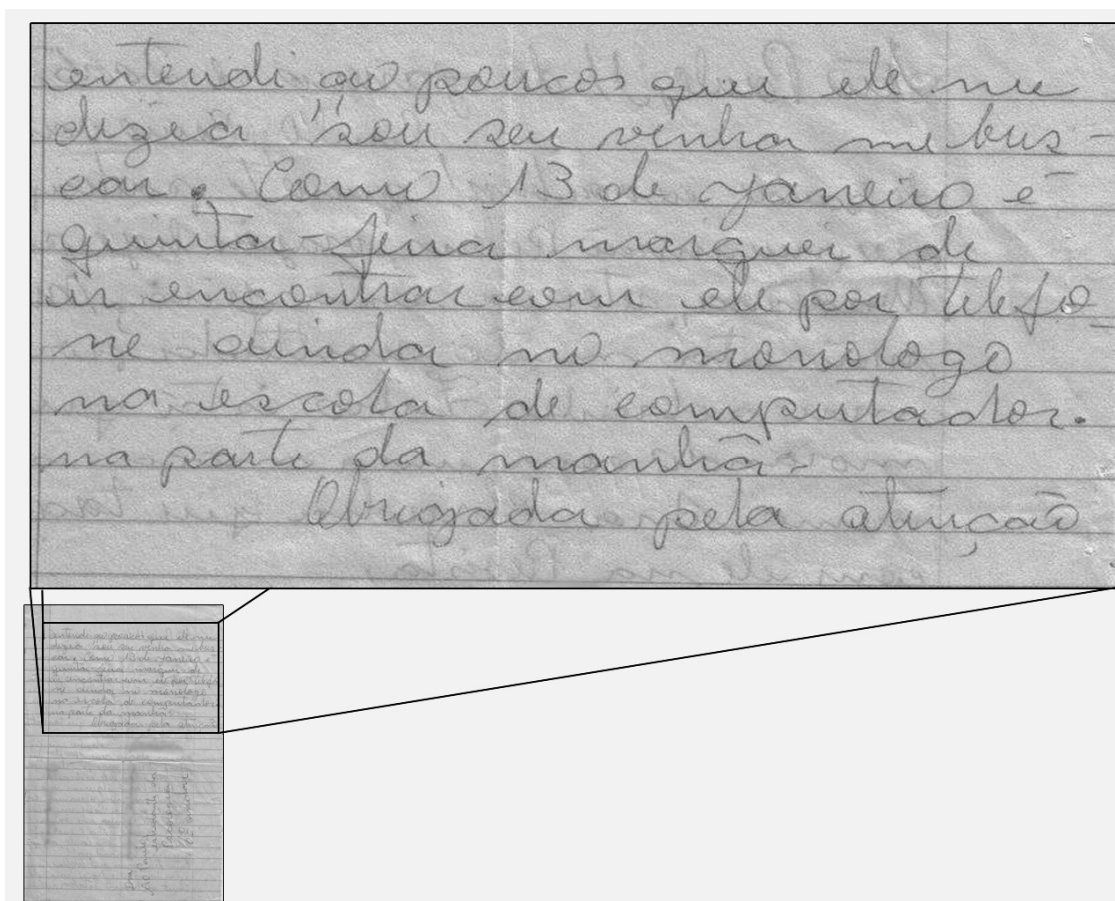 entendi ao poucos que ele me
dizia "sou seu venha me bus-
car. Como 13 de janeiro é
quinta-feira marquei de
ir encontrar com ele por telefo-
ne ainda no monologo
na escola de computador.
na parte da manhã.
Obrigada pela atenção